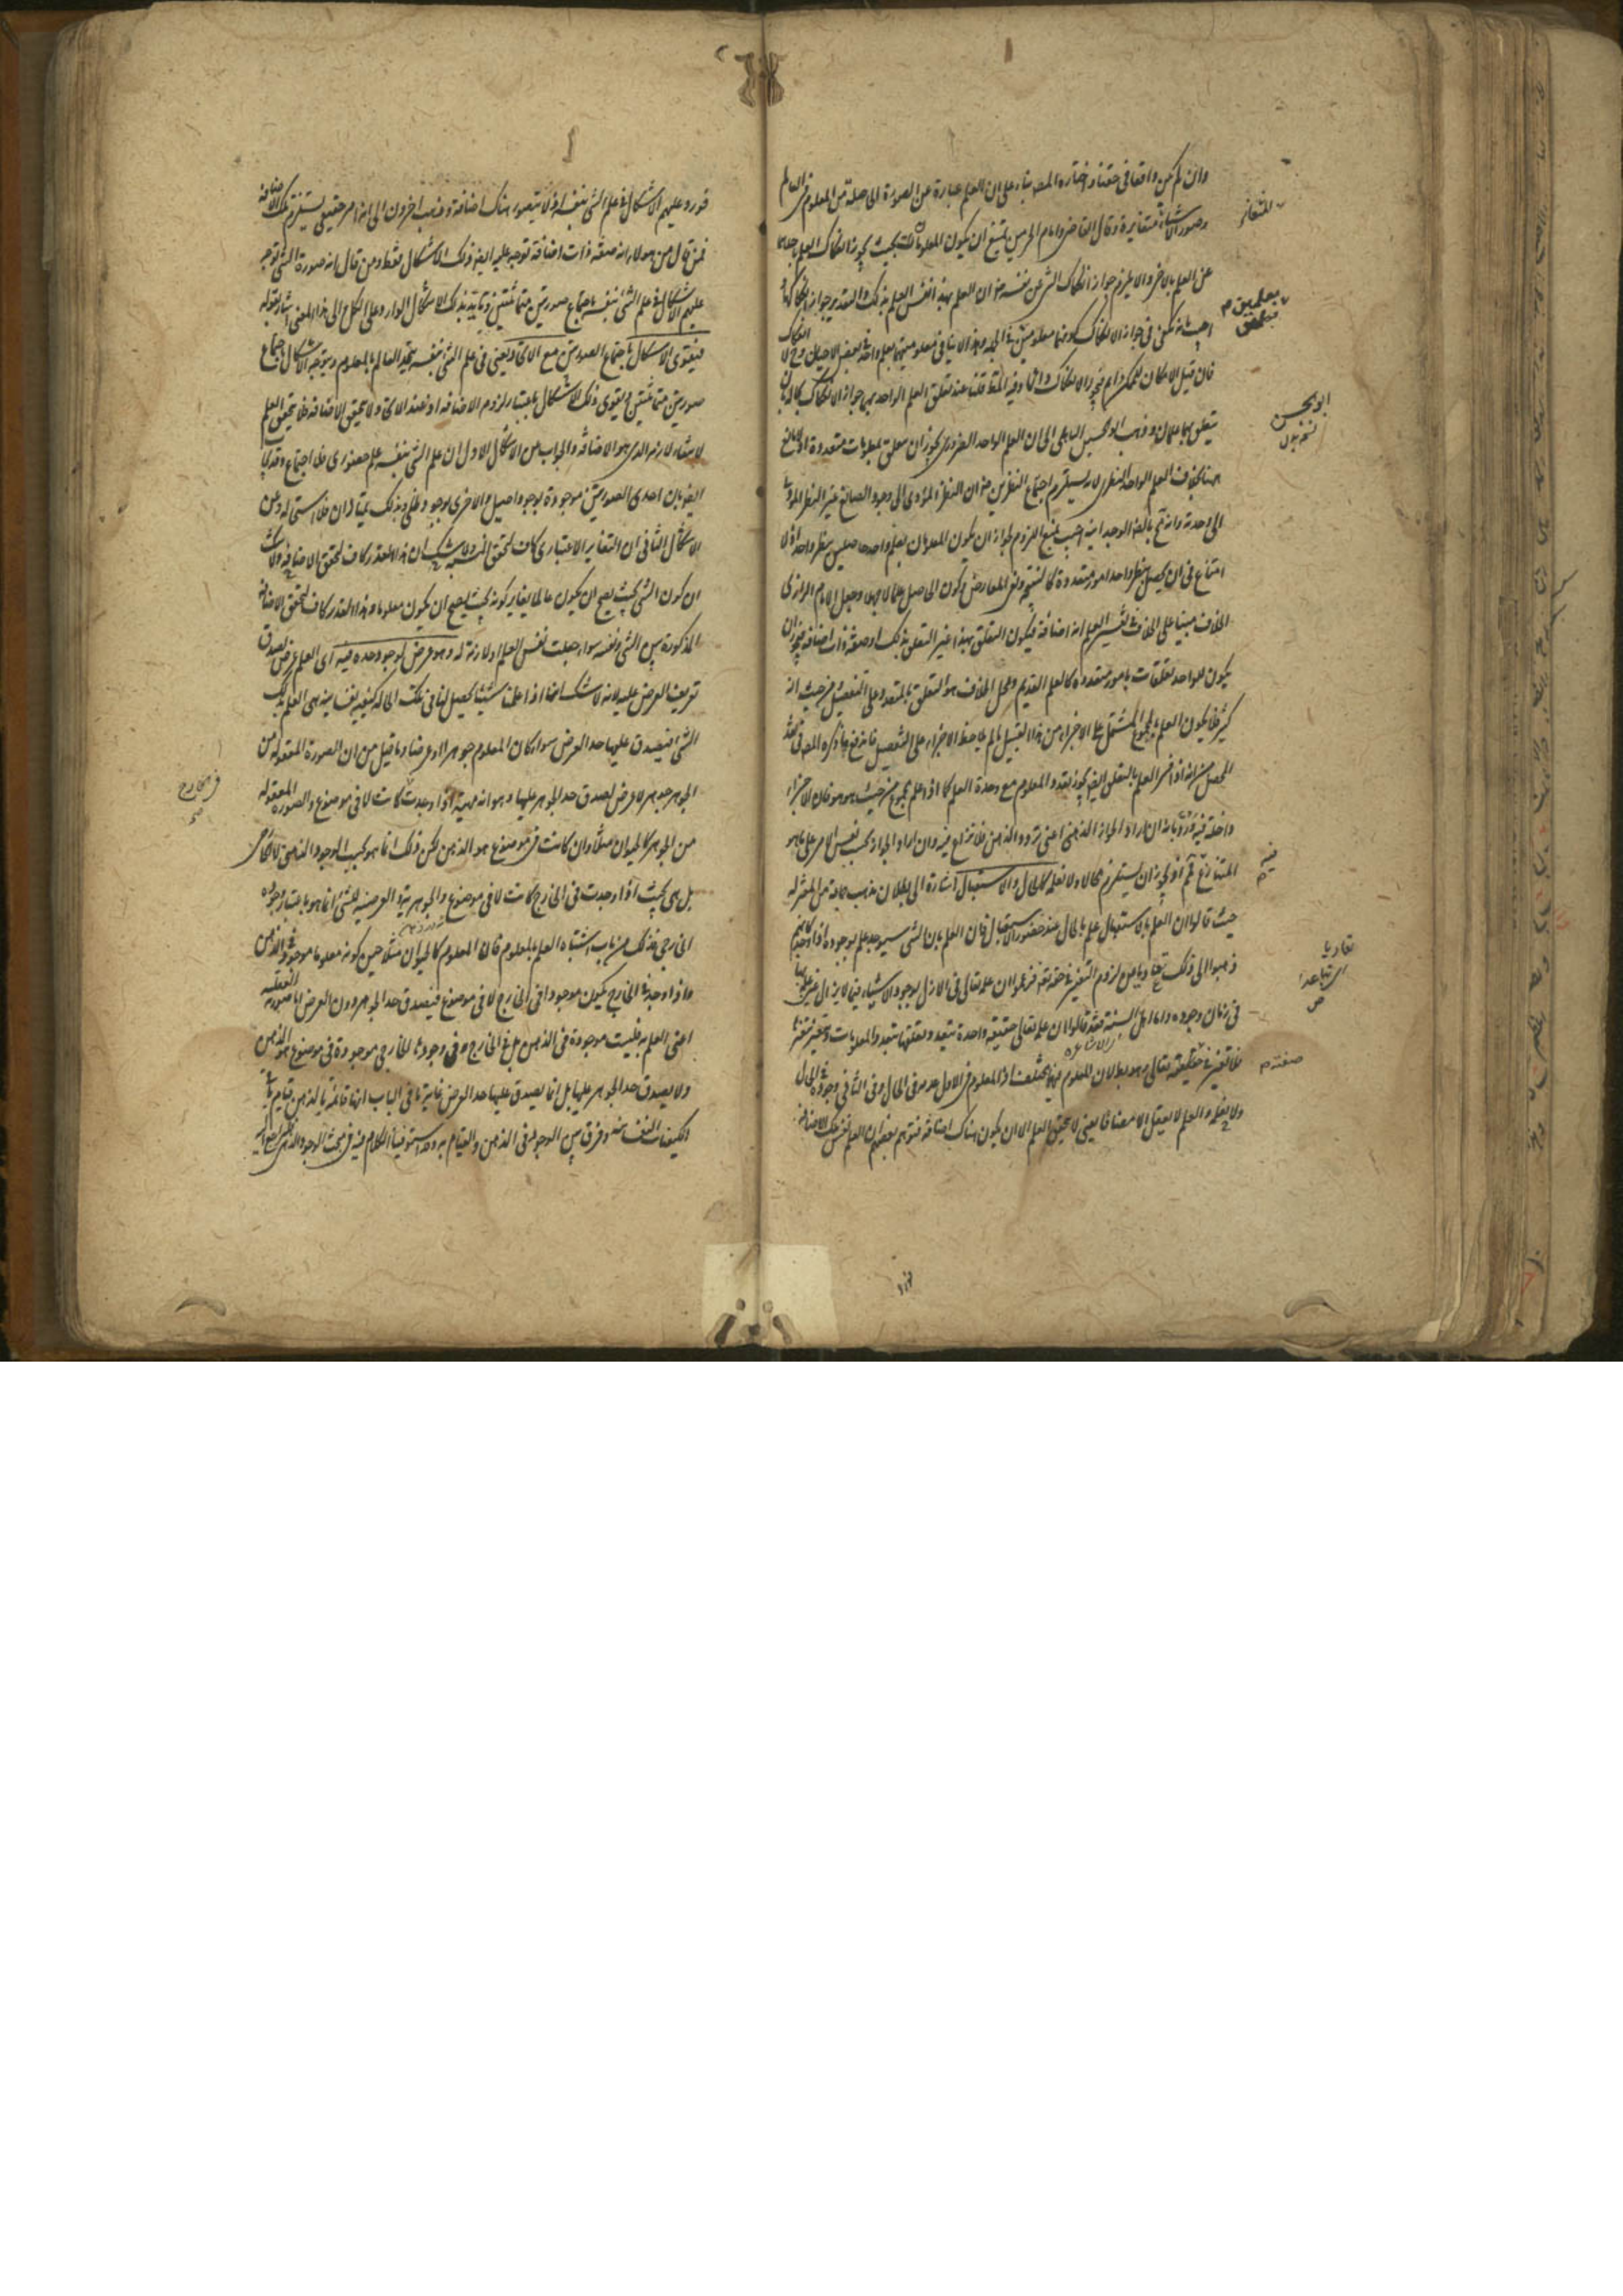 وان لم يكن واقعا فى حقنا واختاره المصـ بناء على ان العلم عبارة عن الصورة الحاصلة من المعلوم فى العالم
وصور الاشياء متغايرة وقال القاضى وامام الحرمين يمتنع ان يكون المعلومات بحيث يجوز انفكاك العلم باحدهما
عن العلم بالاخر والا يلزم جواز انفكاك الشئ عن نفسه ضرورة ان العلم بهذا نفس العلم بذلك والتقدير جواز انفكاكهما
اجيب بانه يكفى فى جواز الانفكاك كونهما معلومين فى الجملة وهذا لا ينافى معلوميتهما بعلم واحد فى بعض الاحيان وح لا انفكاك
فان قيل الامكان للممكن دائم فيجوز الانفكاك دائما وفيه المط قلنا عند تعلق العلم الواحد بهما جواز الانفكاك بحاله بان
يتعلق بهما علمان وذهب ابو الحسين الباهلى الى ان العلم الواحد الضرورى يجوز ان يتعلق بمعلومات متعددة اذ لا مانع
هنا بخلاف العلم الواحد النظرى لانه يستلزم اجتماع النظرين ضرورة ان النظر المؤدى الى وجود الصانع غير النظر المؤدى
الى وحدته وانه محال بالضرورة الوجدانية اجيب بمنع اللزوم لجواز ان يكون المعلومان بعلم واحد حاصلين بنظر واحد اذ لا
امتناع فى ان يحصل بنظر واحد امور متعددة كالنتيجة ونفى المعارض وكون الحاصل علما لا جهلا وجعل الامام الرازى
الخلاف مبنيا على الخلاف فى تفسير العلم انه اضافة فيكون التعلق بهذا غير التعلق بذلك او صفة ذات اضافة فيجوز ان
يكون للواحد تعلقات بامور متعددة كالعلم القديم ومحل الخلاف هو التعلق بالمتعدد على التفصيل من حيث انه
كثير فلا يكون العلم بالمجموع المشتمل على الاجزاء من هذا القبيل ما لم يلاحظ الاجزاء على التفصيل فاندفع ما ذكره المصـ فى نقد
المحصل من انه اذا فسر العلم بالتعلق ايضا يجوز تعدد المعلوم مع وحدة العلم كما اذا علم مجموع من حيث هو هو فان الاجزاء
داخلة فيه ورد بانه ان اراد الجواز الذهنى اعنى تردد الذهن فلا نزاع فيه وان اراد الجواز بحسب نفس الامر على ما هو
المتنازع فمم اذ يجوز ان يستلزم محالا ولا نعلمه كالحال والاستقبال اشارة الى بطلان مذهب جماعة من المعتزلة
حيث قالوا ان العلم بالاستقبال علم بالحال عند حضور الاستقبال فان العلم بان الشئ سيوجد علم بوجوده اذا وجد كانهم
ذهبوا الى ذلك تفاديا من لزوم التغير فى حقه تعالى فزعموا ان علمه تعالى فى الازل بوجود الاشياء فيما لا يزال عين علمه بها
فى زمان وجوده واما اهل السنة فقد قالوا ان علمه تعالى حقيقة واحدة يتعدد تعلقها بتعدد المعلومات ويتغير بتغيرها
من الاشاعرة
فلا تغير فى حقيقته تعالى وهو بط لان المعلوم فيهما مختلف اذ المعلوم فى الاول عدمه فى الحال وفى الثانى وجوده فى الحال
ولا يعقل والعلم لا يعقل الا مضافا يعنى لا يتحقق العلم الا ان يكون هناك اضافة فتوهم بعضهم ان العلم نفس تلك الاضافة
المتغاير
بمعلومين
ابو الحسن
فيه م
تفاديا
اى تباعدا
ص
صفته م
فورد عليهم الاشكال فى علم الشئ بنفسه اذ لا يتصور هناك اضافة وذهب اخرون الى انه امر حقيقى يستلزم تلك الاضافة
فمن قال من هؤلاء انه صفة ذات اضافة توجه عليه ايضا ذلك الاشكال فقط ومن قال انه صورة الشئ توجه
عليهم الاشكال فى علم الشئ بنفسه باجتماع صورتين متماثلتين وتايد بذلك الاشكال الوارد على الكل والى هذا المعنى اشار بقوله
فيقوى الاشكال باجتماع الصورتين مع الاتحاد يعنى فى علم الشئ بنفسه يتحد العالم بالمعلوم ويتوجه الاشكال باجتماع
صورتين متماثلتين ويقوى ذلك الاشكال باعتبار لزوم الاضافة اذ عند الاتحاد لا يتحقق الاضافة فلا يتحقق العلم
لانتفاء لازمه الذى هو الاضافة والجواب عن الاشكال الاول ان علم الشئ بنفسه علم حضورى فلا اجتماع وقد يجاب
ايضا بان احدى الصورتين موجودة بوجود اصيل والاخرى بوجود ظلى وبذلك يمتازان فلا استحالة وعن
الاشكال الثانى ان التغاير الاعتبارى كاف لتحقق النسبة ولا شك ان هذا القدر كاف لتحقق الاضافة ولا شك
ان كون الشئ بحيث يصح ان يكون عالما يغاير كونه بحيث يصح ان يكون معلوما وهذا القدر كاف لتحقق الاضافة
المذكورة بين الشئ ونفسه سواء جعلت نفس العلم او لازمة له وهو عرض لوجود حده فيه اى العلم عرض لصدق
تعريف العرض عليه لانه لا شك انا اذا علمنا شيئا يحصل لنا فى تلك الحالة كيفية نفسانية هى العلم بذلك
الشئ فيصدق عليها حد العرض سواء كان المعلوم جوهرا او عرضا وما قيل من ان الصورة المعقولة من
الجوهر جوهر لا عرض لصدق حد الجوهر عليها وهو انه ماهية اذا وجدت كانت لا فى موضوع والصورة المعقولة
من الجوهر كالحيوان مثلا وان كانت فى موضوع هو الذهن لكن ذلك انما هو بحسب الوجود الذهنى لا الخارجى
بل هى بحيث اذا وجدت فى الخارج كانت لا فى موضوع والجوهرية والعرضية للشئ انما هو باعتبار وجوده
الخارجى فذلك من باب اشتباه العلم بالمعلوم فان المعلوم كالحيوان مثلا حين كونه معلوما موجود فى الذهن
واذا وجد فى الخارج يكون موجودا فى الخارج لا فى موضوع فيصدق حد الجوهر دون العرض اما صورته العقلية
اعنى العلم به فليست موجودة فى الذهن بل فى الخارج وفى وجودها الخارجى موجودة فى موضوع هو الذهن
ولا يصدق حد الجوهر عليها بل انما يصدق عليها حد العرض غاية ما فى الباب انها قائمة بالذهن قيام باقى
الكيفيات النفسانية وفرق بين الوجود فى الذهن والقيام به وقد استوفينا الكلام فيه فى بحث الوجود الذهنى فليراجع اليه
فى الخارج
صح